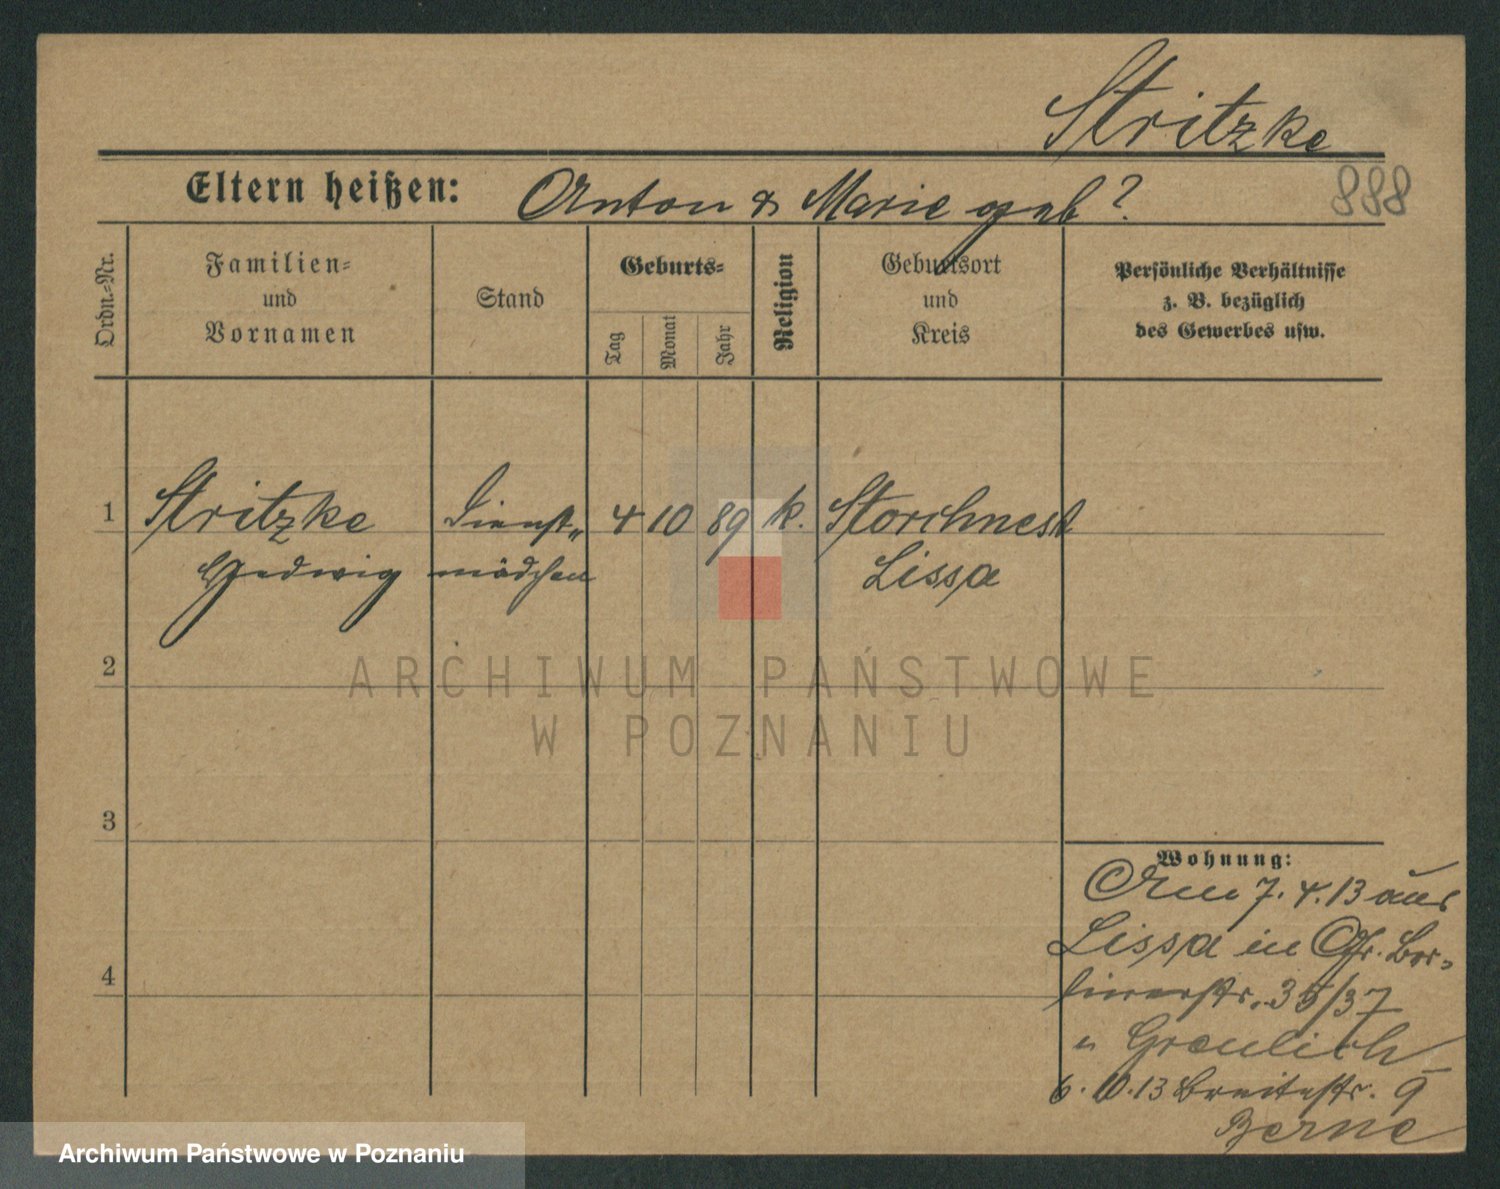 Stritzke
Eltern heißen: Anton & Marie geb? 888
Ordn.-Nr.
Familien-
und
Vornamen
Stand
Geburts-
Tag
Monat
Jahr
Religion
Geburtsort
und
Kreis
Persönliche Verhältnisse
z. B. bezüglich
des Gewerbes usw.
1 Stritzke Dienst- 4 10 89 k. Storchnest
Hedwig mädchen Lissa
2
ARCHIWUM PAŃSTWOWE
W POZNANIU
3
Wohnung:
7.4.13 aus
Lissa in Gr. Ber-
linerstr. 35/37
Greulich
6.10.13 Breitestr. 9
Berne
4
Archiwum Państwowe w Poznaniu